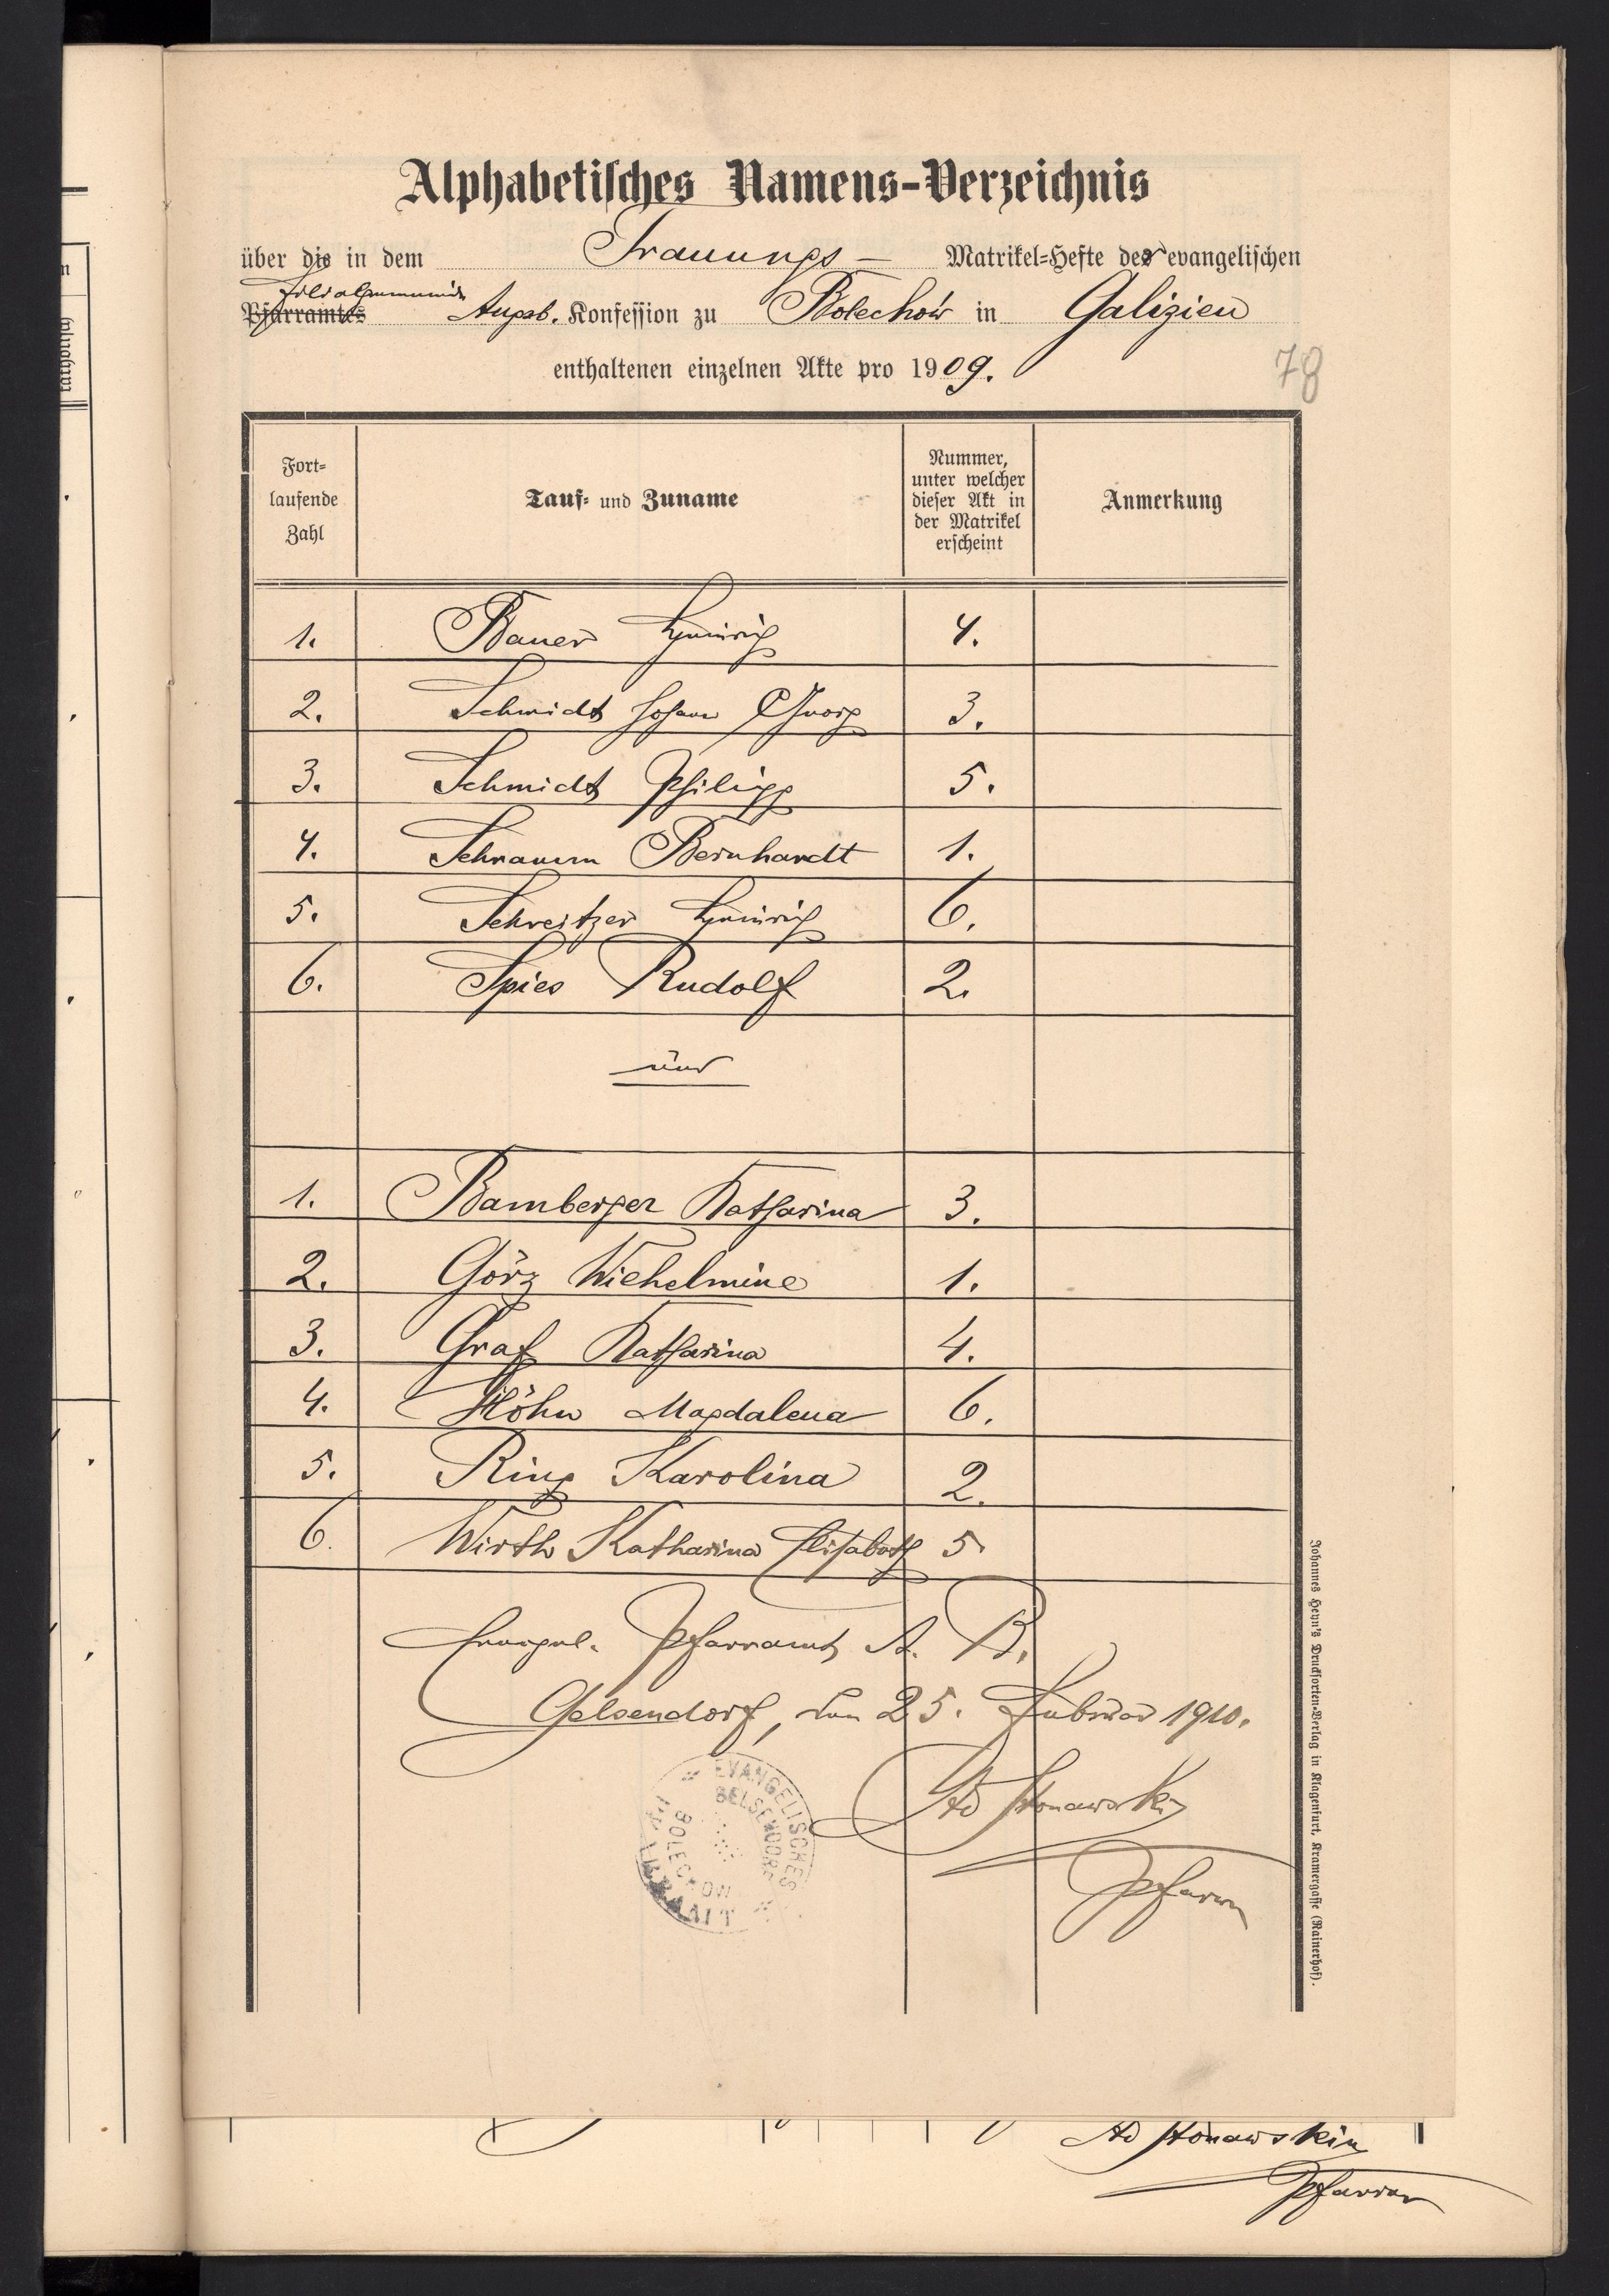 Alphabetisches Namens-Verzeichnis
über die in dem Trauungs- Matrikel-Hefte der evangelischen
Filialgemeinde
Pfarramtes Augsb. Konfession zu Bolechów in Galizien
enthaltenen einzelnen Akte pro 1909.
78
Fort-
laufende
Zahl
Tauf- und Zuname
Nummer,
unter welcher
dieser Akt in
der Matrikel
erscheint
Anmerkung
1. Bauer Heinrich 4.
2. Schmidt Johann Georg 3.
3. Schmidt Philipp 5.
4. Schramm Bernhardt 1.
5. Schreitzer Heinrich 6.
6. Spies Rudolf 2.
und
1. Bamberger Katharina 3.
2. Görz Wiehelmine 1.
3. Graf Katharina 4.
4. Höhn Magdalena 6.
5. Ring Karolina 2.
6. Wirth Katharina Elisabeth 5.
Evangel. Pfarramt A. B.
Gelsendorf, den 25. Februar 1910.
EVANGELISCHES
GELSENDORF
BOLECHOW
Pfarrer
Johannes Heyn's Drucksorten-Verlag in Klagenfurt, Kramergasse (Rainerhof).
Pfarrer